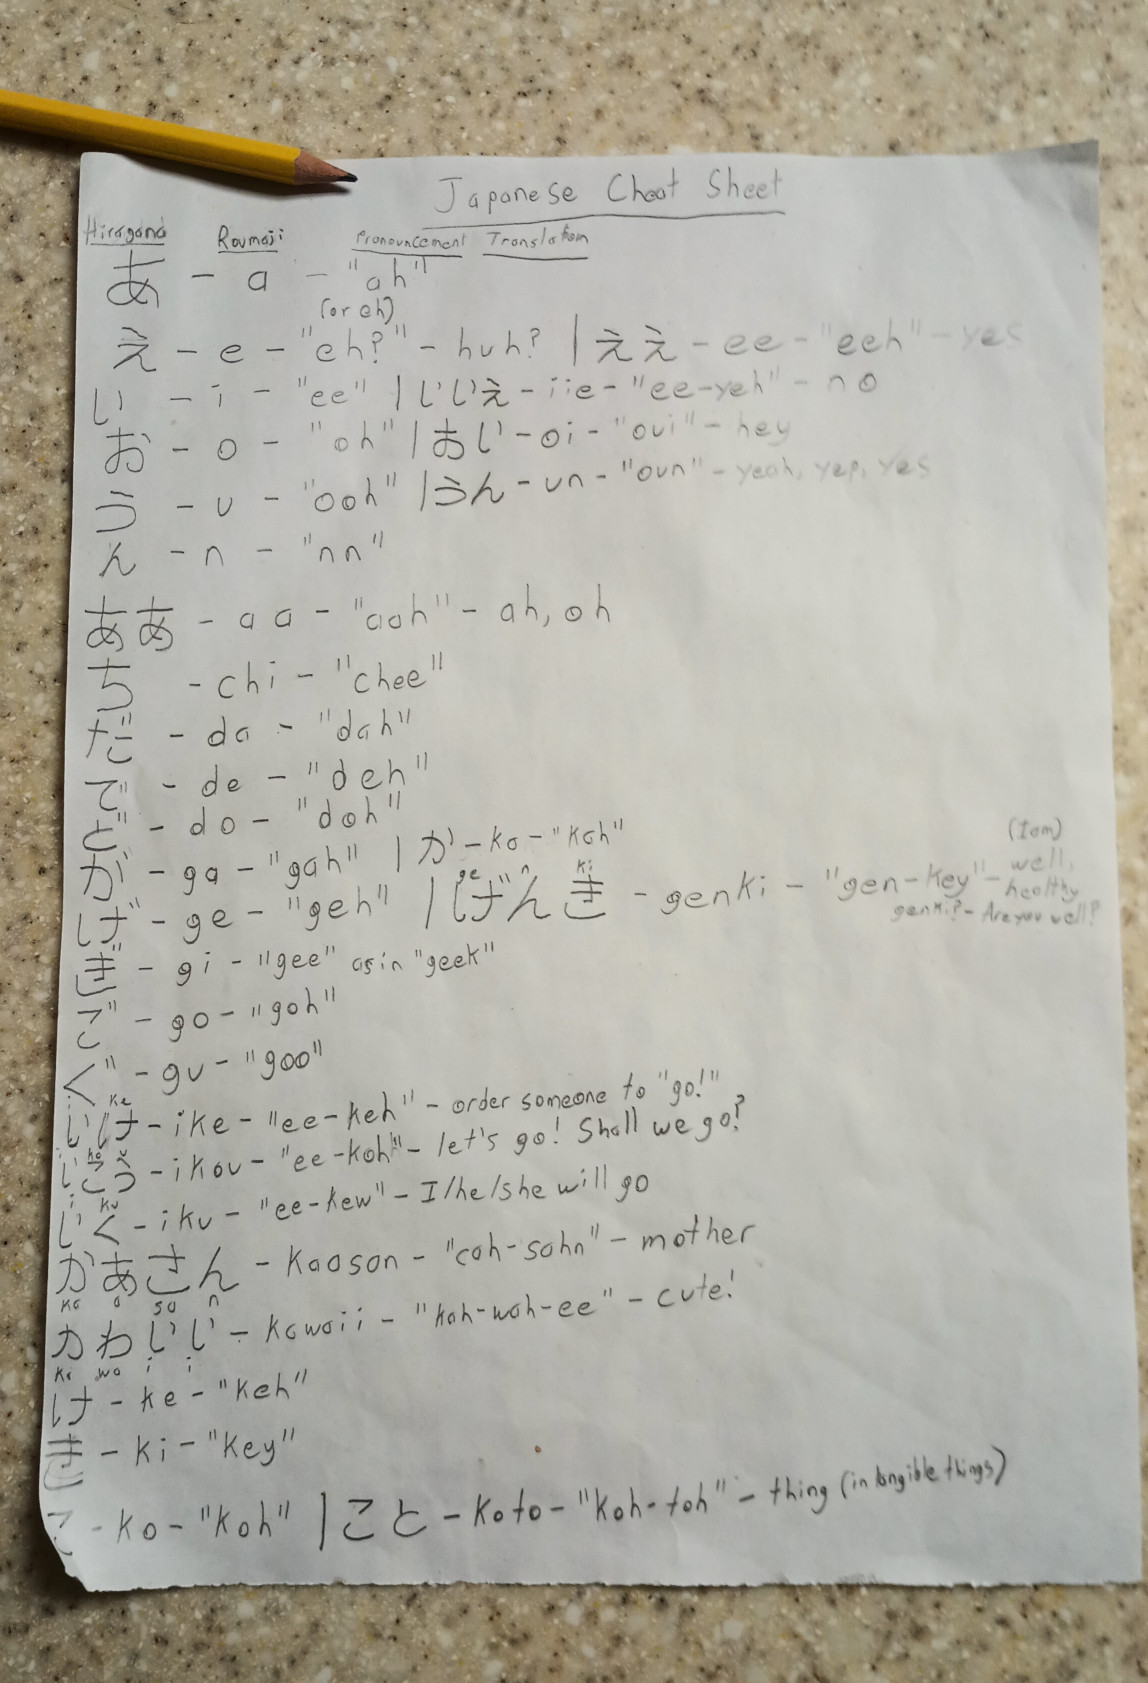 Japanese Cheat Sheet
Hiragana Roumaji Pronouncement Translation
あ - a - "ah"
(or eh)
え - e - "eh?" - huh? | ええ - ee - "eeh" - yes
い - i - "ee" | いいえ - iie - "ee-yeh" - no
お - o - "oh" | おい - oi - "oui" - hey
う - u - "ooh" | うん - un - "oun" - yeah, yep, yes
ん - n - "nn"
ああ - aa - "aah" - ah, oh
ち - chi - "chee"
だ - da - "dah"
で - de - "deh"
ど - do - "doh"
が - ga - "gah" | か - ka - "kah"
げ - ge - "geh" | げんき - genki - "gen-key" - (I am) well, healthy
ge n ki
genki? - Are you well?
ぎ - gi - "gee" as in "geek"
ご - go - "goh"
ぐ - gu - "goo"
i ke
いけ - ike - "ee-keh" - order someone to "go!"
i ko u
いこう - ikou - "ee-koh" - let's go! Shall we go?
i ku
いく - iku - "ee-kew" - I/he/she will go
かあさん - kaasan - "cah-sahn" - mother
ka a sa n
かわいい - kawaii - "kah-wah-ee" - cute!
ka wa i i
け - ke - "keh"
き - ki - "key"
こ - ko - "koh" | こと - koto - "koh-toh" - thing (intangible things)